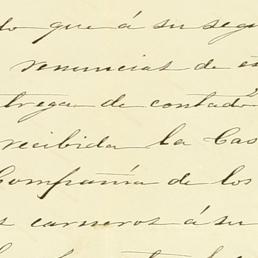 do que á su segu
renuncias de es
trega de contado
recibida la Cas
Compañía de los
s carneros á su